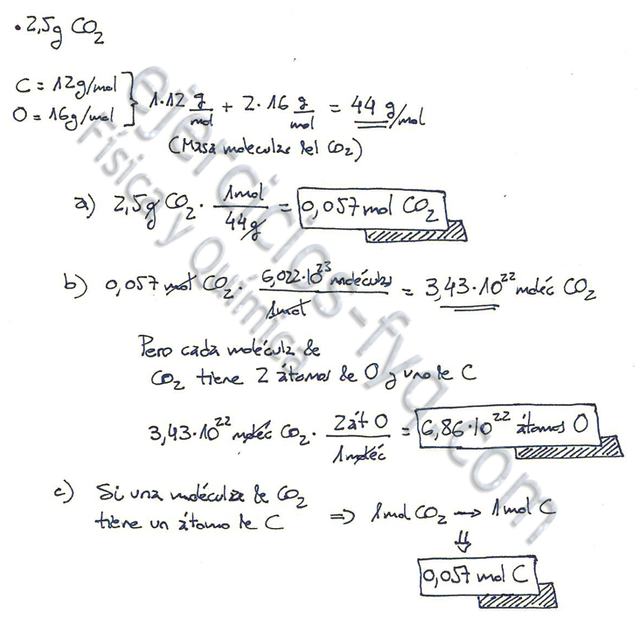 • 2,5g CO₂
C = 12g/mol
O = 16g/mol } 1·12 g/mol + 2·16 g/mol = 44 g/mol
(Masa molecular del CO₂)
a) 2,5g CO₂ · 1mol/44g = 0,057 mol CO₂
b) 0,057 mol CO₂ · 6,022·10²³ moléculas/1mol = 3,43·10²² moléc CO₂
Pero cada molécula de
CO₂ tiene 2 átomos de O y uno de C
3,43·10²² moléc CO₂ · 2 át O/1 moléc = 6,86·10²² átomos O
c) Si una molécula de CO₂
tiene un átomo de C ⇒ 1mol CO₂ → 1mol C
⇓
0,057 mol C
ejercicios-fyq.com
Física y Química